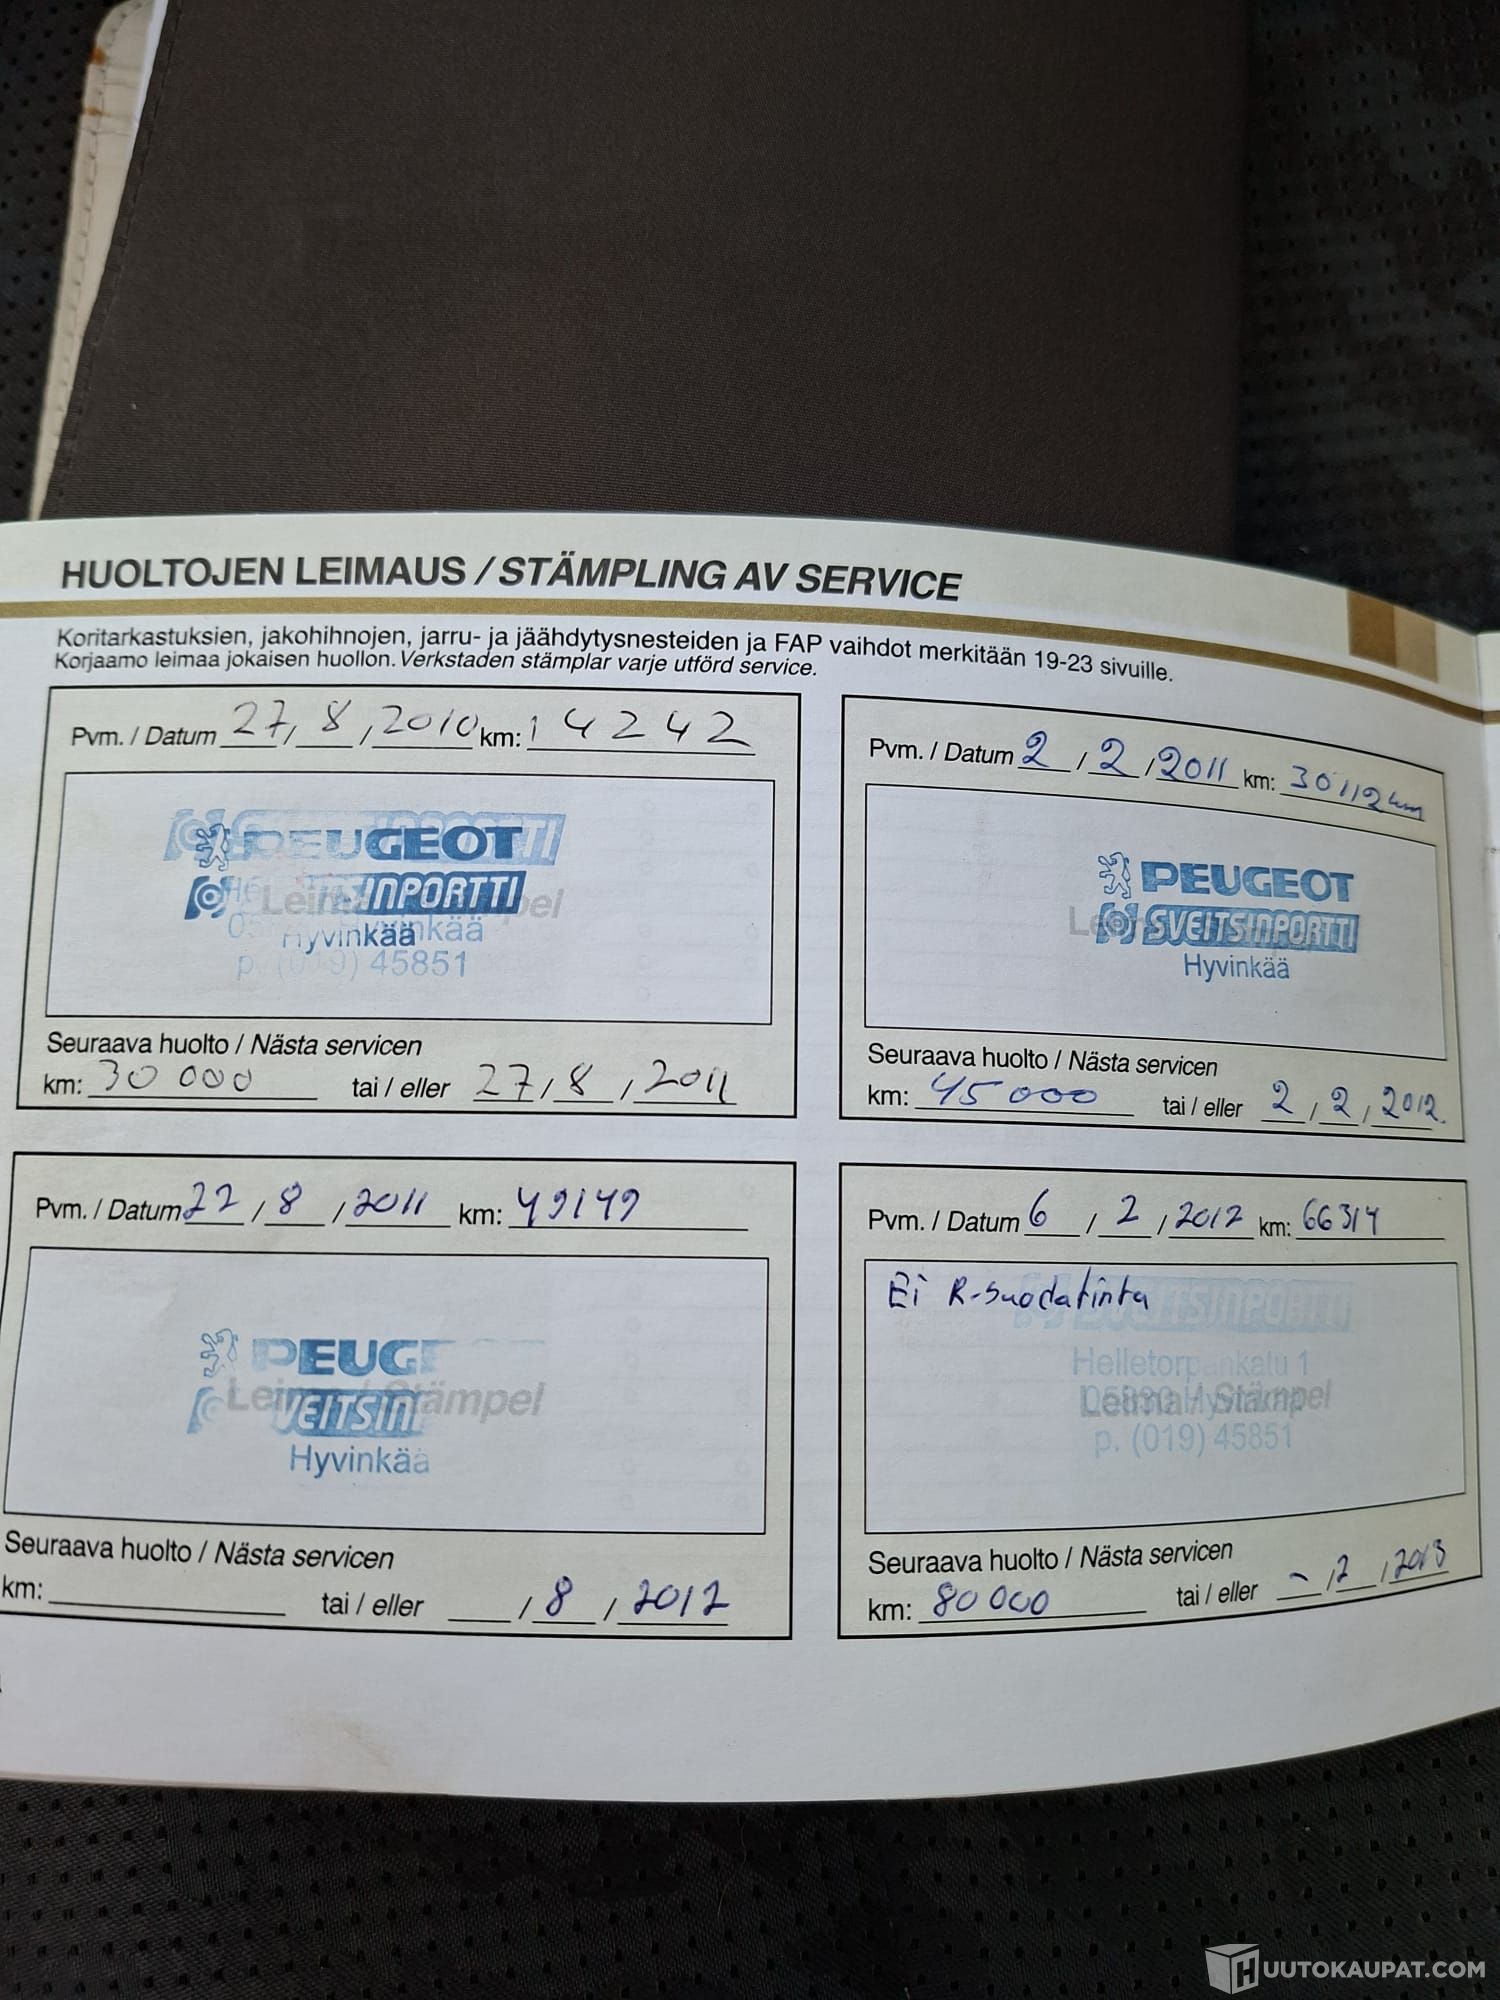 HUOLTOJEN LEIMAUS / STÄMPLING AV SERVICE
Koritarkastuksien, jakohihnojen, jarru- ja jäähdytysnesteiden ja FAP vaihdot merkitään 19-23 sivuille.
Korjaamo leimaa jokaisen huollon. Verkstaden stämplar varje utförd service.
Pvm. / Datum 27, 8, 2010 km: 14242
PEUGEOT
SINPORTTI
Hyvinkää
p. (019) 45851
Seuraava huolto / Nästa servicen
km: 30 000 tai / eller 27, 8, 2011
Pvm. / Datum 2 / 2 / 2011 km: 30112 km
PEUGEOT
SVEITSINPORTTI
Hyvinkää
Seuraava huolto / Nästa servicen
km: 45 000 tai / eller 2, 2, 2012
Pvm. / Datum 22 / 8 / 2011 km: 49149
PEUGEOT
Leima / Stämpel
VEITSIN
Hyvinkää
Seuraava huolto / Nästa servicen
km: tai / eller / 8 / 2012
Pvm. / Datum 6 / 2 / 2012 km: 66314
Ei R-suodatinta
SVEITSINPORTTI
Helletorpankatu 1
Leima / Stämpel
p. (019) 45851
Seuraava huolto / Nästa servicen
km: 80 000 tai / eller -, 2, 2013
HUUTOKAUPAT.COM